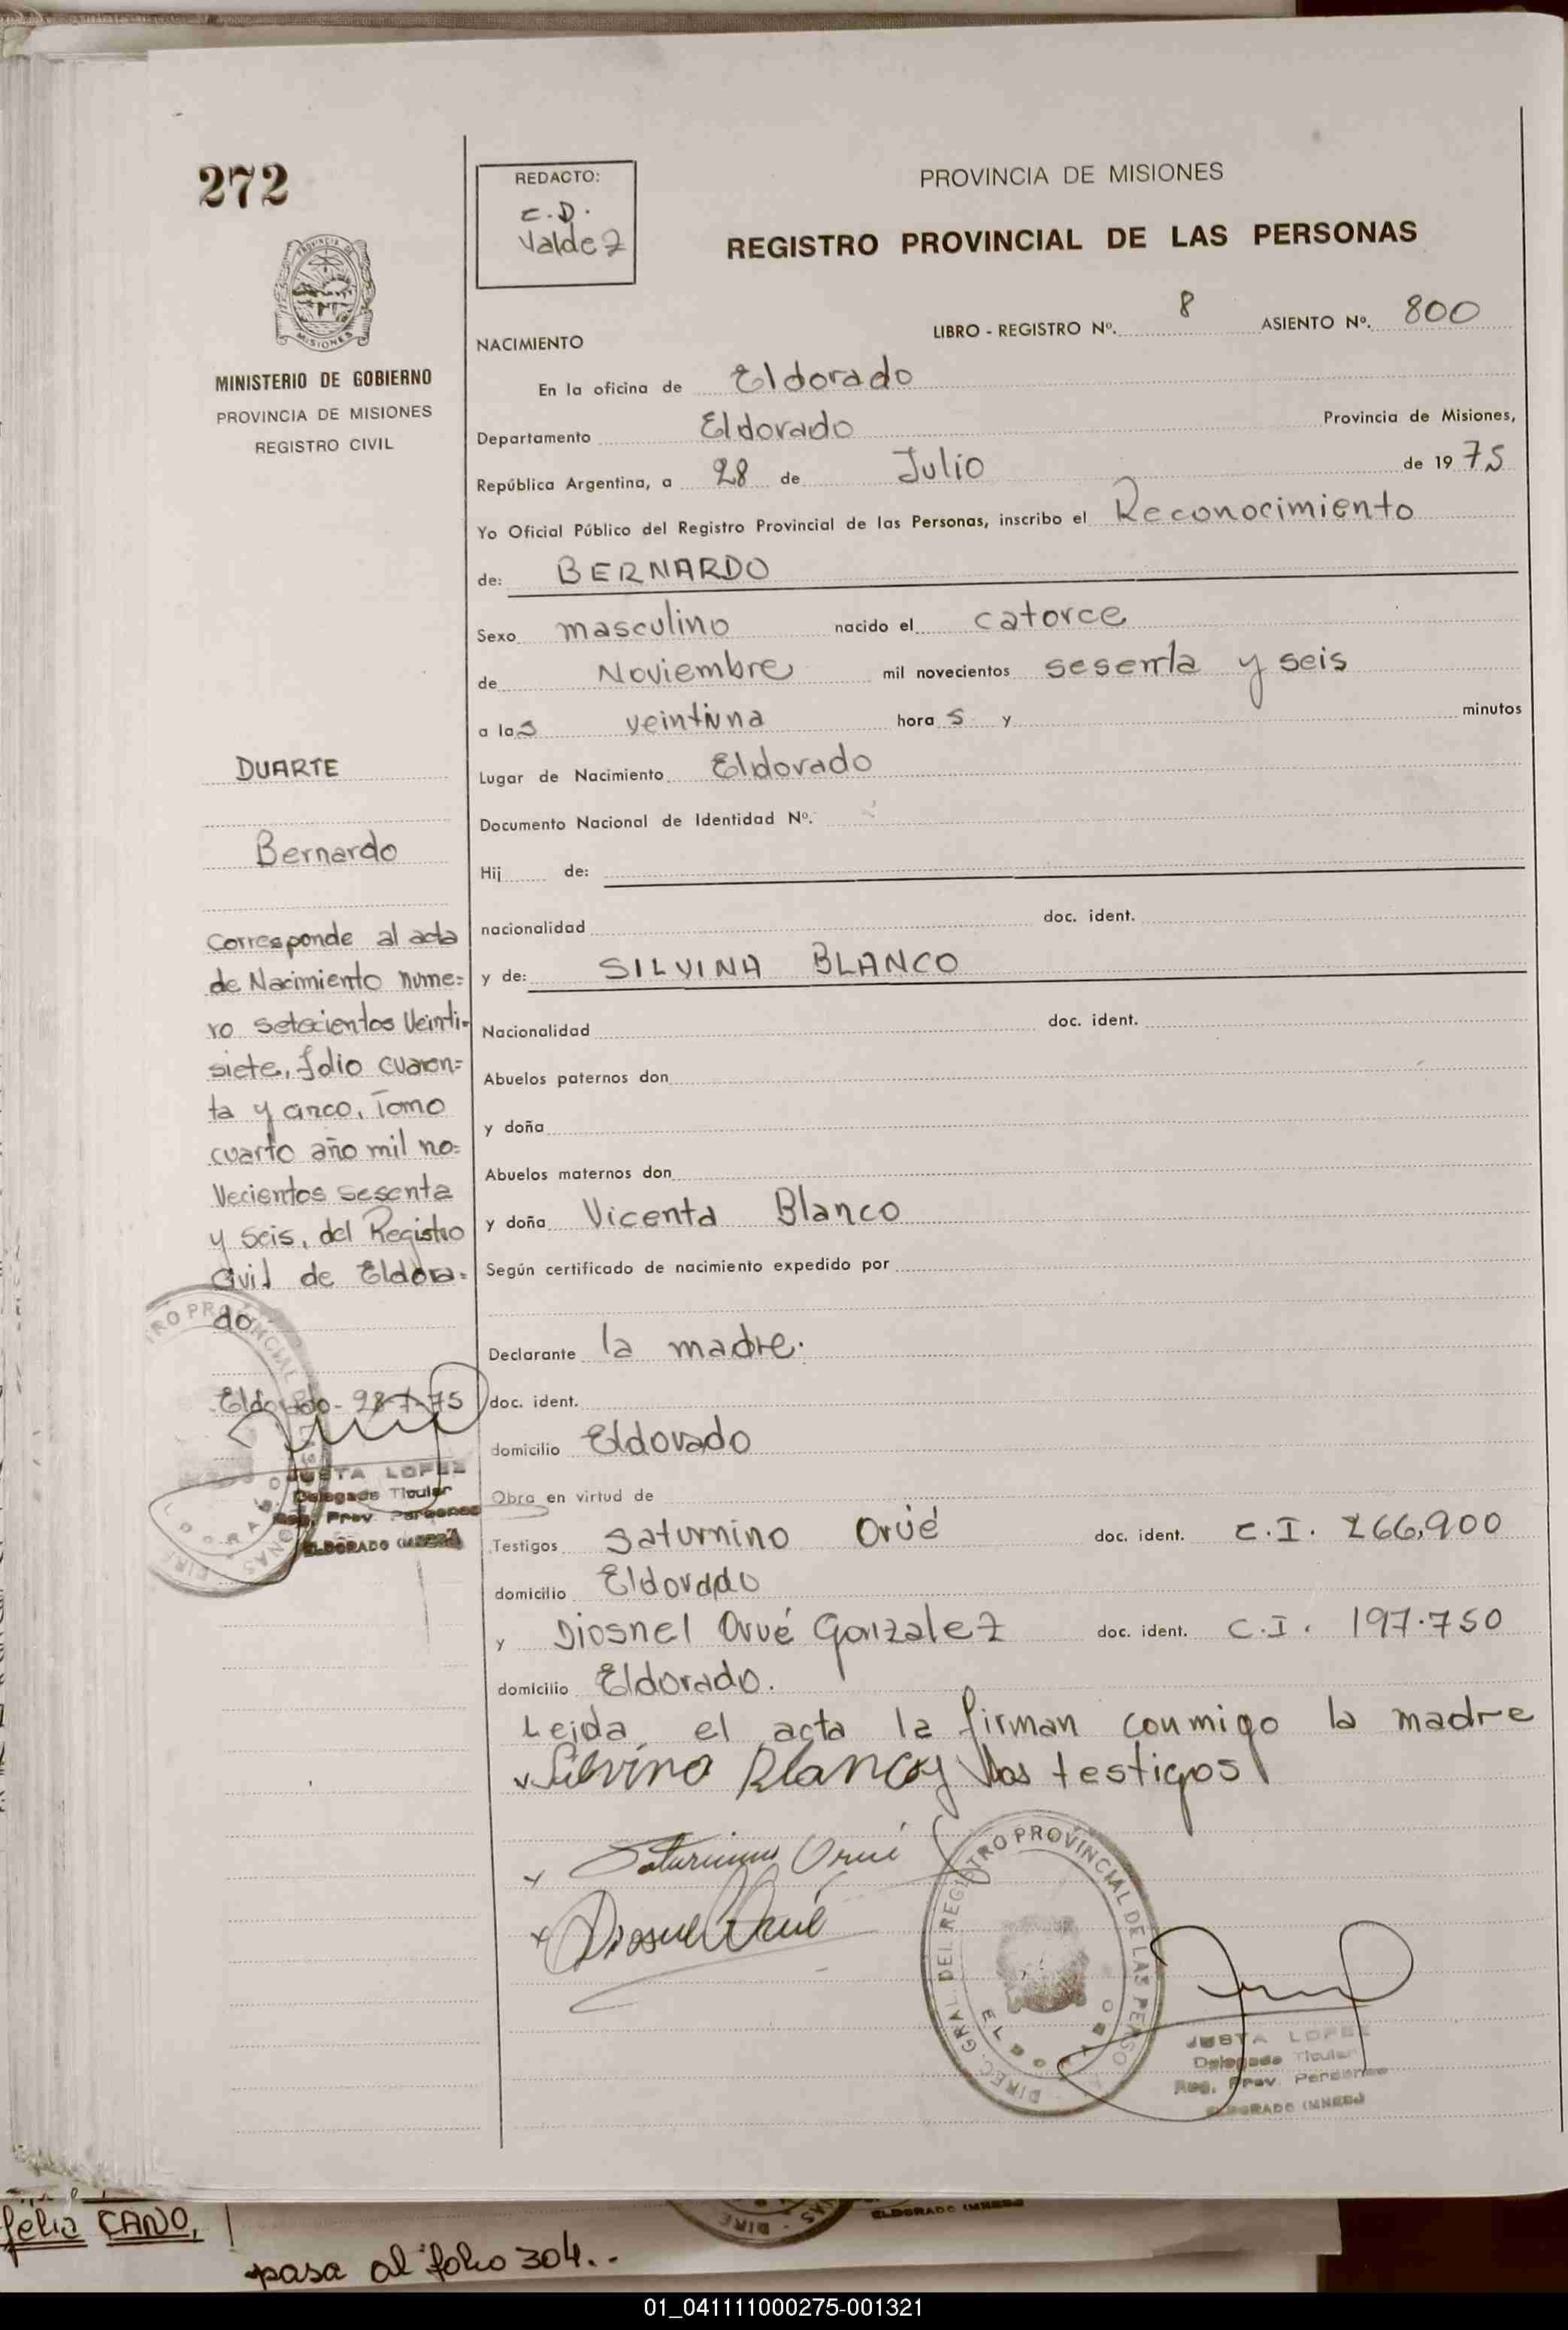 272
MINISTERIO DE GOBIERNO
PROVINCIA DE MISIONES
REGISTRO CIVIL
REDACTO:
C.D.
Valdez
PROVINCIA DE MISIONES
REGISTRO PROVINCIAL DE LAS PERSONAS
LIBRO - REGISTRO Nº. 8 ASIENTO Nº. 800
NACIMIENTO
En la oficina de Eldorado
Departamento Eldorado Provincia de Misiones,
República Argentina, a 28 de Julio de 1975
Yo Oficial Público del Registro Provincial de las Personas, inscribo el Reconocimiento
de: BERNARDO
Sexo masculino nacido el catorce
de Noviembre mil novecientos sesenta y seis
a las veintiuna horas y minutos
Lugar de Nacimiento Eldorado
Documento Nacional de Identidad Nº.
Hij de:
nacionalidad doc. ident.
y de: SILVINA BLANCO
Nacionalidad doc. ident.
Abuelos paternos don
y doña
Abuelos maternos don
y doña Vicenta Blanco
Según certificado de nacimiento expedido por
Declarante la madre.
doc. ident.
domicilio Eldorado
Obra en virtud de
Testigos Saturnino Orué doc. ident. C.I. 266,900
domicilio Eldorado
y Diosnel Orué Gonzalez doc. ident. C.I. 197.750
domicilio Eldorado.
Leida el acta la firman conmigo la madre
Silvina Blanco y los testigos
Saturnino Orué
Diosnel Orué
DIREC. GRAL. DEL REGISTRO PROVINCIAL DE LAS PERSO
ELDORADO
JUSTA LOPEZ
Delegada Titular
Reg. Prov. Personas
ELDORADO (MNES)
DUARTE
Bernardo
Corresponde al acta
de Nacimiento nume=
ro setecientos Veinti-
siete, folio cuaren=
ta y cinco, Tomo
cuarto año mil no=
vecientos sesenta
y seis, del Registro
Civil de Eldora=
do
Eldorado - 28-7-75
JUSTA LOPEZ
Delegada Titular
Reg. Prov. Personas
ELDORADO (MNES)
CANO,
pasa al folio 304..
ELDORADO (MNES)
01_041111000275-001321